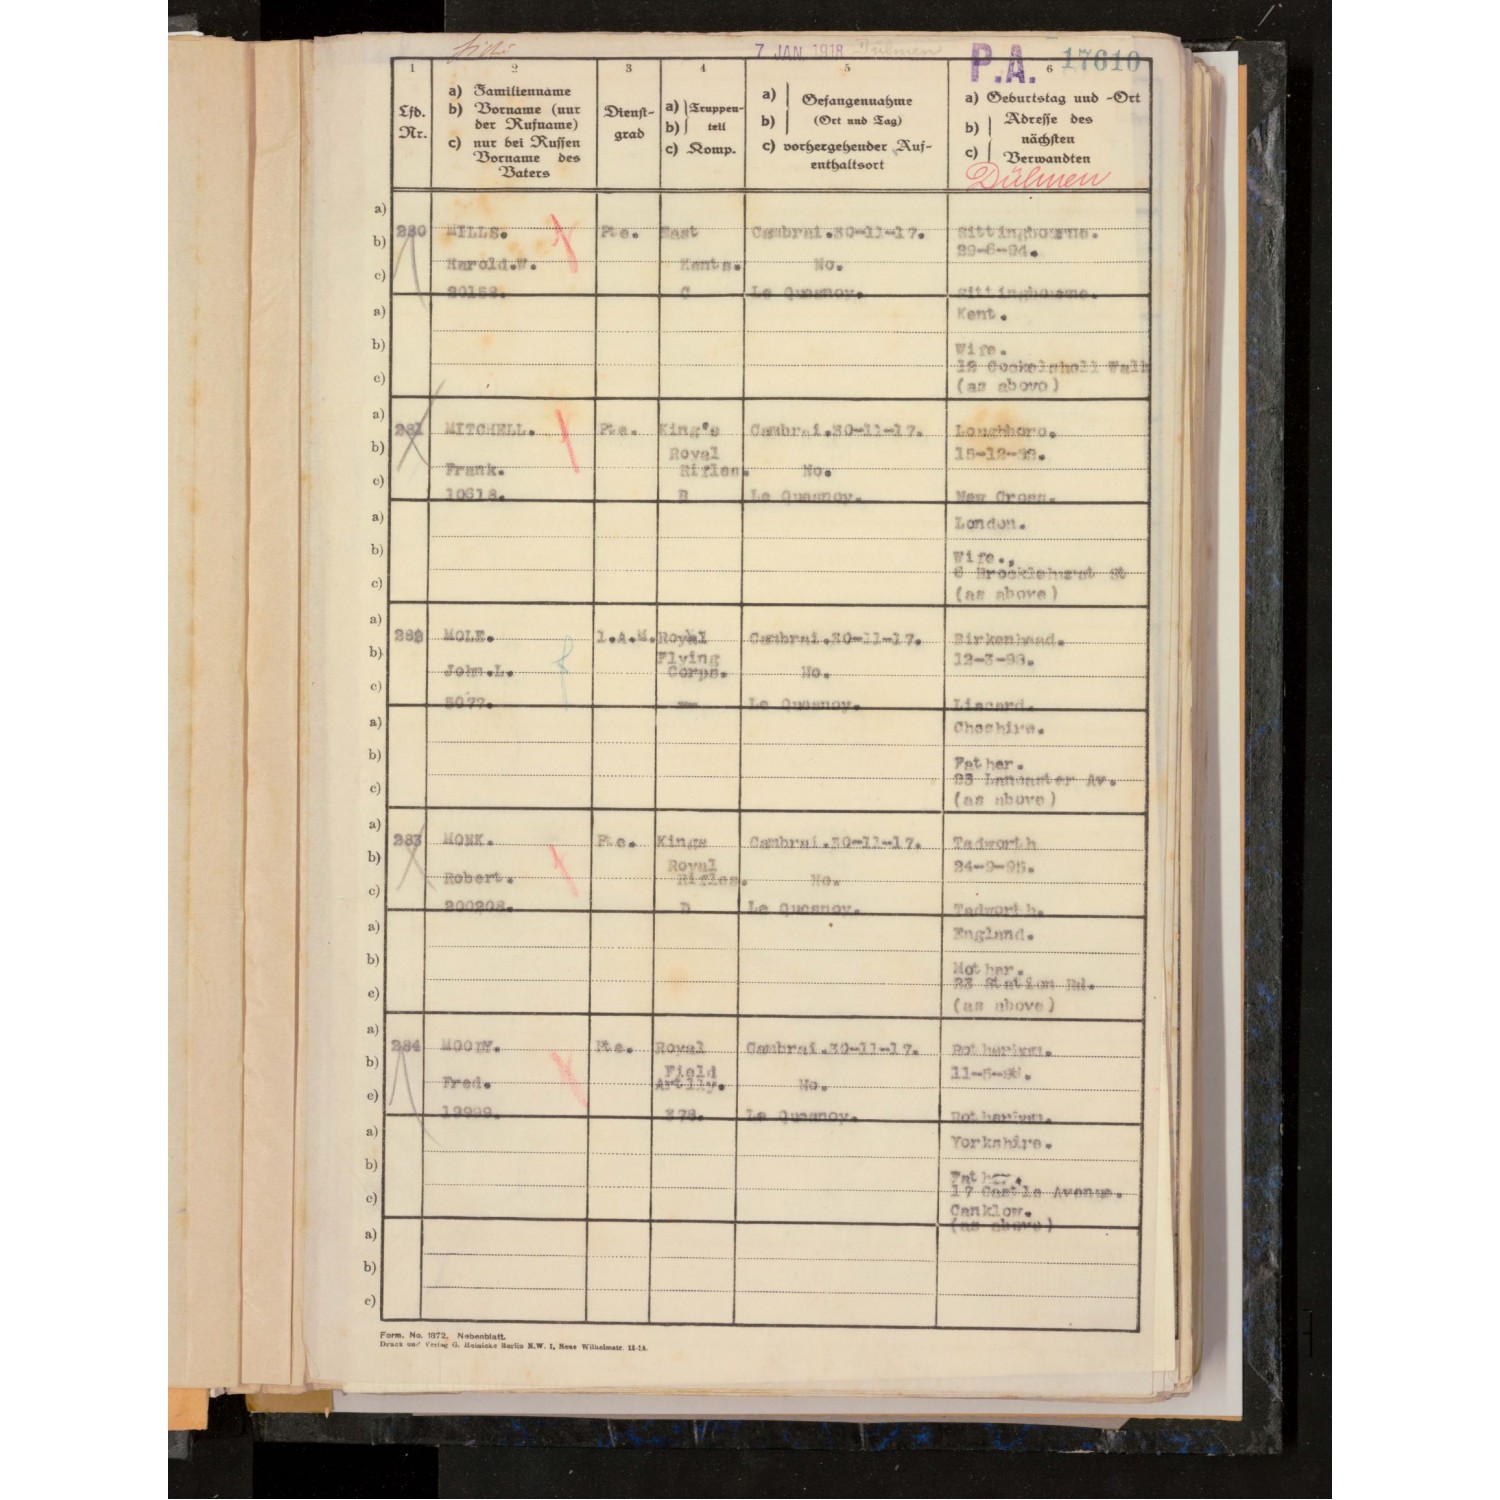 7 JAN. 1918 Dülmen P.A. 17610
1 2 3 4 5 6
Lfd. Nr.
a) Familienname
b) Vorname (nur der Rufname)
c) nur bei Russen Vorname des Vaters
Dienst-
grad
a) Truppen-
b) teil
c) Komp.
a) Gefangennahme
b) (Ort und Tag)
c) vorhergehender Auf-
enthaltsort
a) Geburtstag und -Ort
b) Adresse des
nächsten
c) Verwandten
Dülmen
a)
280 MILLS. Pte. East Cambrai.30-11-17. Sittingbourne.
b) 29-6-94.
Harold.W. Kents. No.
c)
20158. C Le Quesnoy. Sittingbourne.
a) Kent.
b) Wife.
12 Cockelshell Walk
c) (as above)
a)
281 MITCHELL. Pte. King's Cambrai.30-11-17. Loughboro.
b) Royal 15-12-
Frank. Rifles. No.
c)
10618. B Le Quesnoy. New Cross.
a) London.
b) Wife.,
6 Brocklehurst St
c) (as above)
a)
282 MOLE. 1.A.M. Royal Cambrai.30-11-17. Birkenhead.
b) Flying 12-3-98.
John.L. Corps. No.
c)
5077. -- Le Quesnoy. Liscard.
a) Cheshire.
b) Father.
23 Lancaster Av.
c) (as above)
a)
283 MONK. Pte. Kings Cambrai.30-11-17. Tadworth
b) Royal 24-9-95.
Robert. Rifles. No.
c)
200208. D Le Quesnoy. Tadworth.
a) England.
b) Mother.
23 Station Rd.
c) (as above)
a)
284 MOODY. Pte. Royal Cambrai.30-11-17. Rotherham.
b) Field 11-5-
Fred. Artlly. No.
c)
19999. E78. Le Quesnoy. Rotherham.
a) Yorkshire.
b) Father.
17 Castle Avenue.
c) Canklow.
(as above)
a)
b)
c)
Form. No. 1872. Nebenblatt.
Druck und Verlag G. Meinicke Berlin N.W. 7, Neue Wilhelmstr.